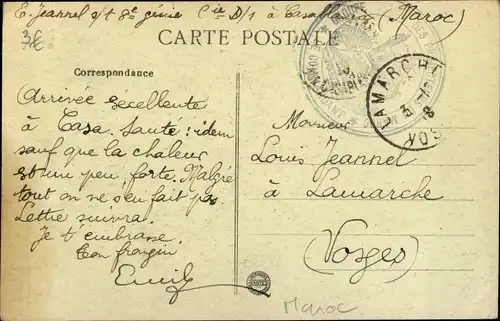 E. Jeannel s/t 8e génie Cie D/1 à Casablanca (Maroc)
3€
CARTE POSTALE
Correspondance
Arrivée excellente
à Casa. Santé : idem
sauf que la chaleur
est un peu forte. Malgré
tout on ne s'en fait pas.
Lettre suivra.
Je t'embrasse.
Ton frangin
Emile
LAMARCHE
VOSGES
Monsieur
Louis Jeannel
à Lamarche
(Vosges)
Maroc